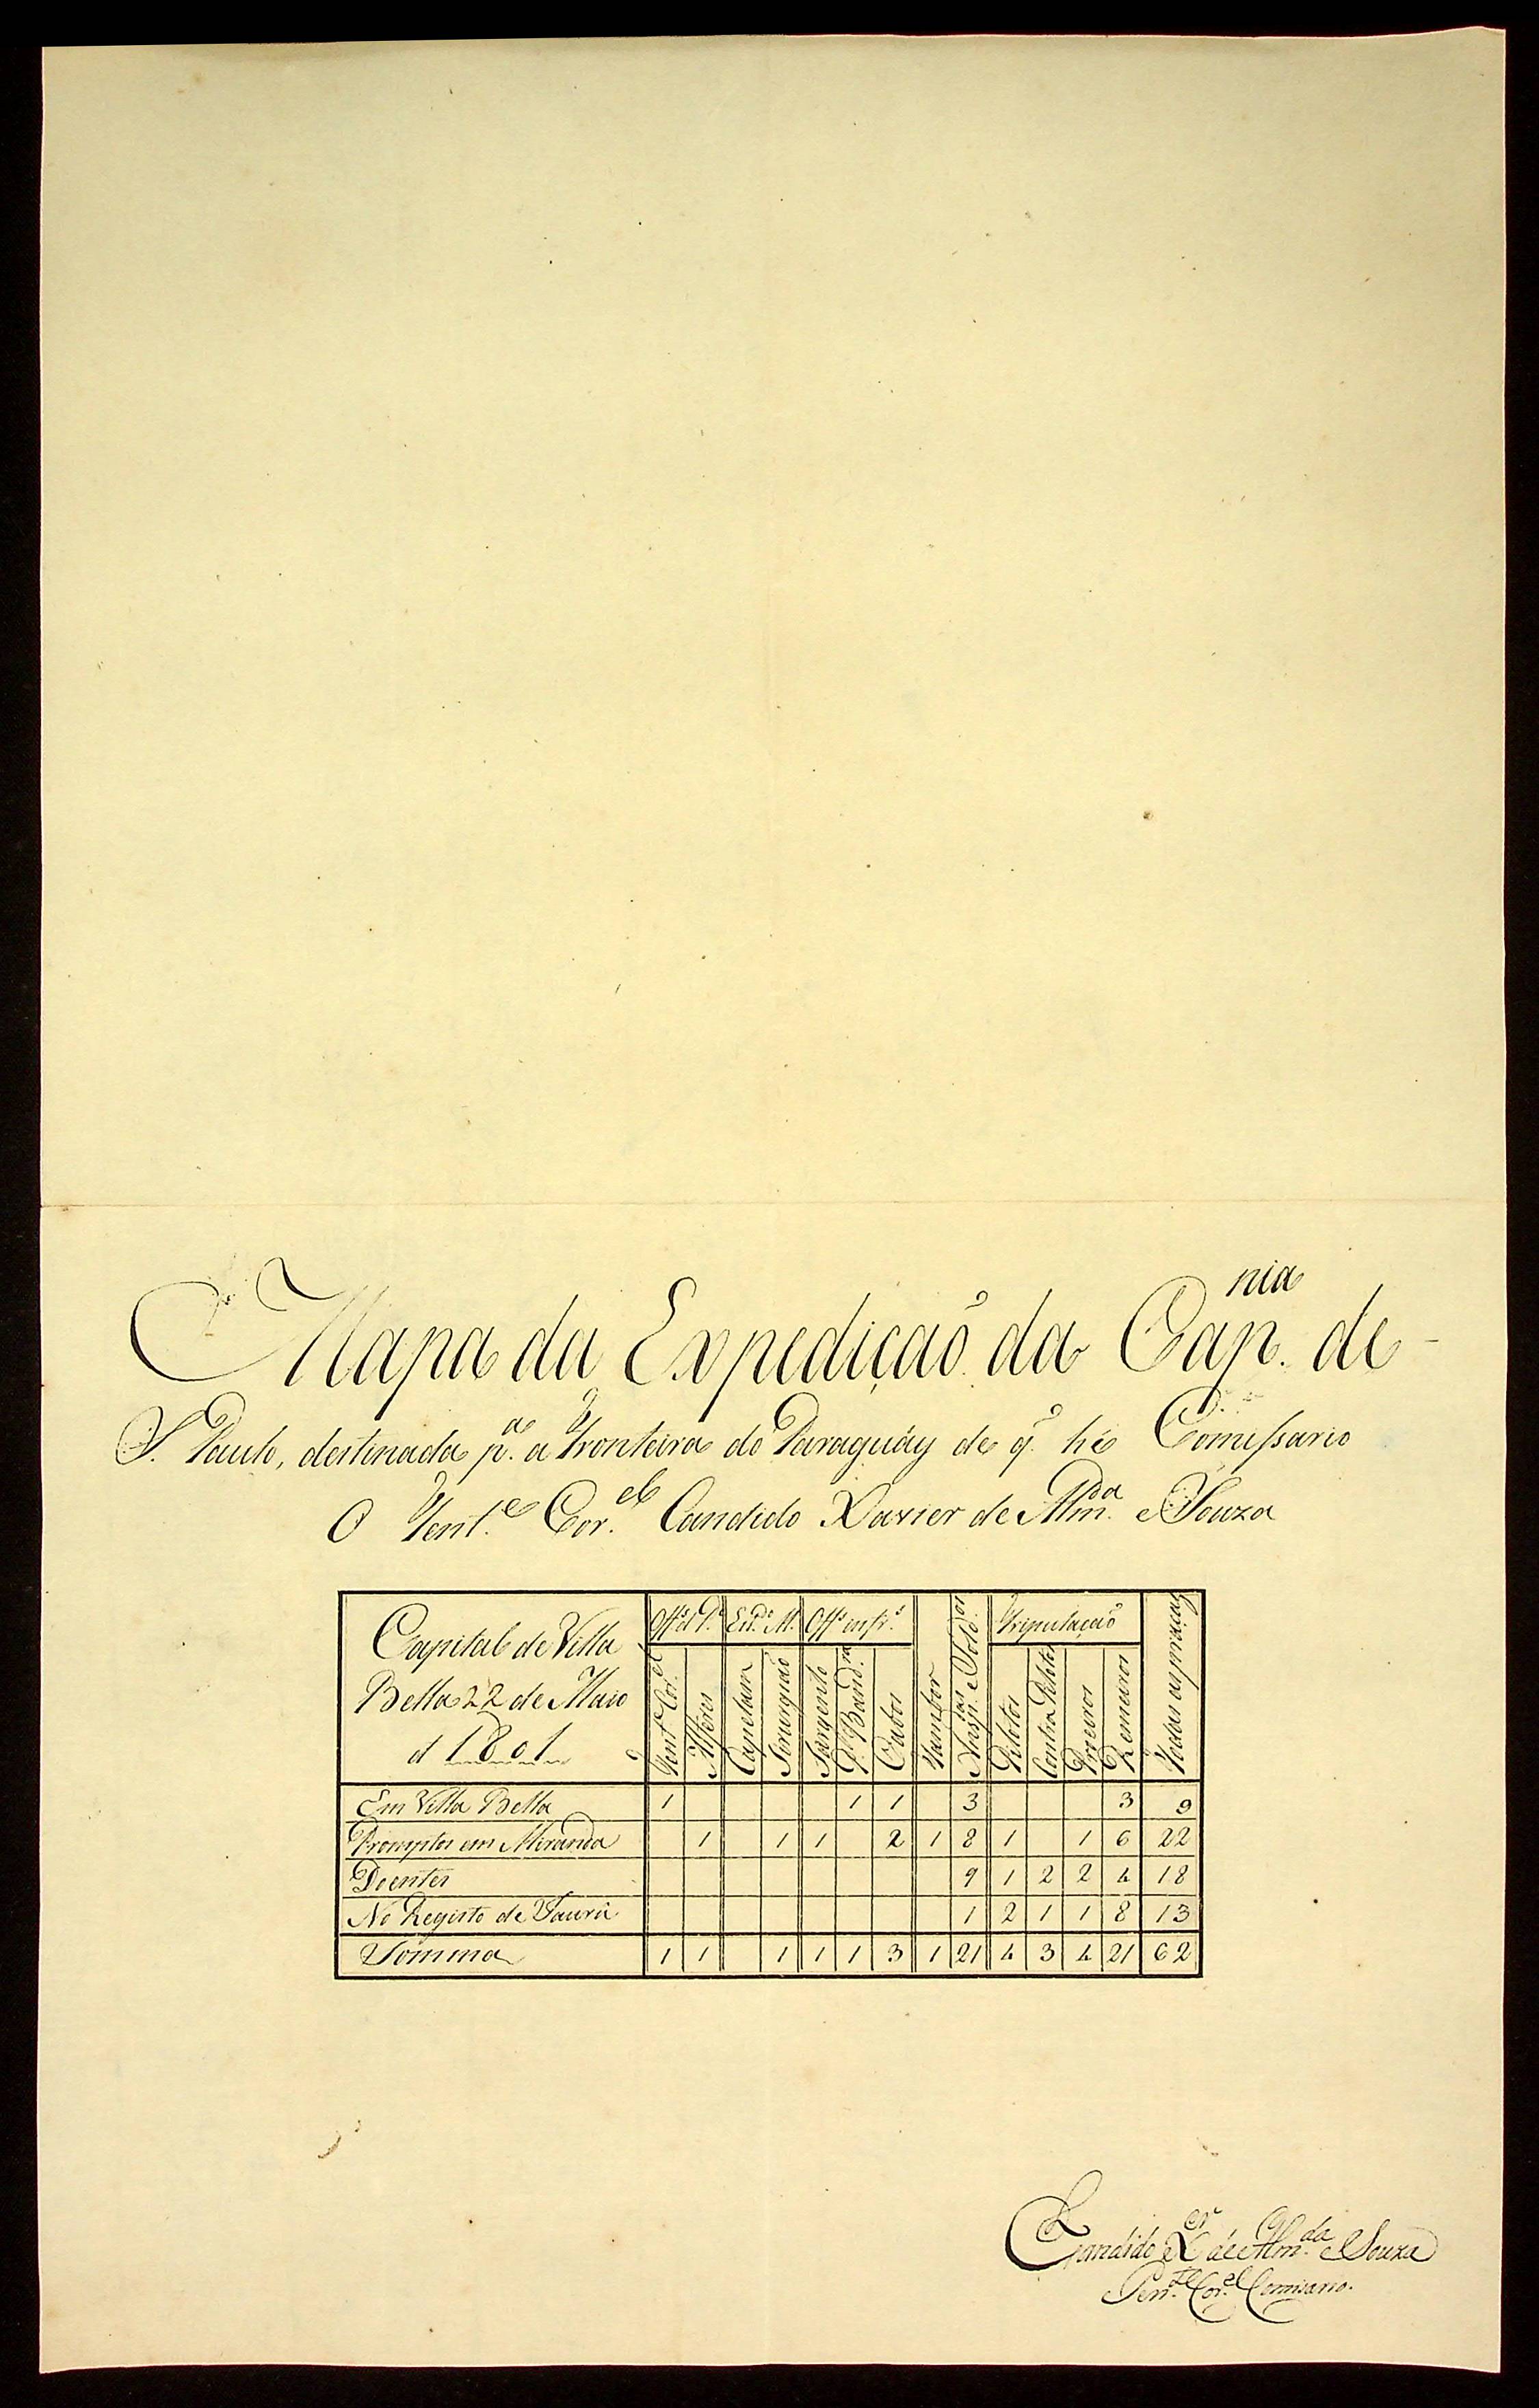 Mapa da Expedição da Cap.nia de
S. Paulo, destinada p.a a Fronteira do Paraguáy de q. hé Comissario
O Tent.e Cor.el Candido Xavier de Alm.da e Souza
Capital de Villa
Bella 22 de Maio
d 1801
Off.s d P.
Est.o M.
Off.s inf.s
Tambor
Ansp.das e Sold.os
Tripulação
Todas as praças
Tent.e Cor.el
Alferes
Capelam
Sirurgião
Sargento
P. Band.ra
Cabos
Pilotos
Contra Pilotos
Proeiros
Remeiros
Em Villa Bella 1 1 1 3 3 9
Promptos em Miranda 1 1 1 2 1 8 1 1 6 22
Doentes 9 1 2 2 4 18
No Registo de Jaurú 1 2 1 1 8 13
Somma 1 1 1 1 1 3 1 21 4 3 4 21 62
Candido X.er de Alm.da e Souza
Ten.te Cor.el Comisario.